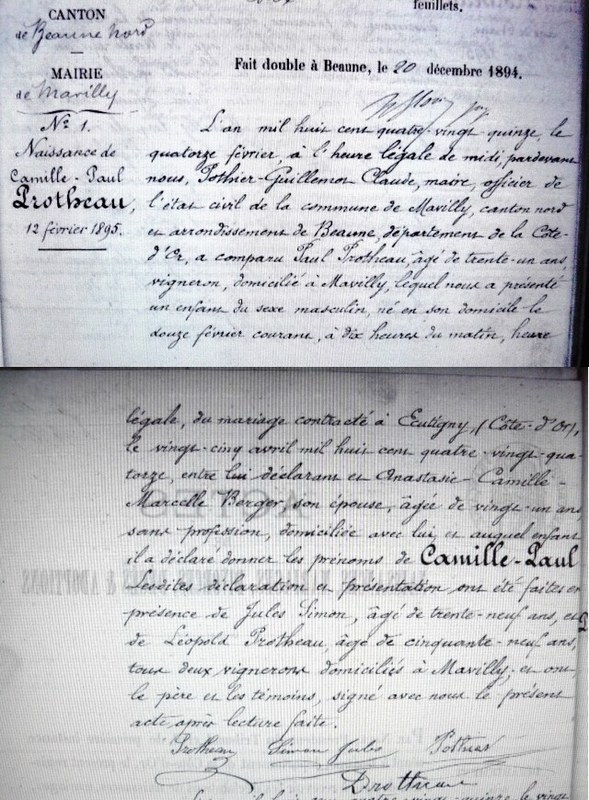 feuillets.
CANTON
de Beaune Nord
Fait double à Beaune, le 20 décembre 1894.
MAIRIE
de Mavilly
N° 1.
Naissance de
Camille-Paul
Protheau,
12 février 1895.
L'an mil huit cent quatre-vingt quinze, le
quatorze février, à l'heure légale de midi, pardevant
nous, Pothier-Guillemot Claude, maire, officier de
l'état civil de la commune de Mavilly, canton nord
et arrondissement de Beaune, département de la Côte-
d'Or, a comparu Paul Protheau, âgé de trente-un ans,
vigneron, domicilié à Mavilly, lequel nous a présenté
un enfant du sexe masculin, né en son domicile le
douze février courant, à dix heures du matin, heure
légale, du mariage contracté à Ecutigny, (Côte-d'Or),
le vingt-cinq avril mil huit cent quatre-vingt-qua-
torze, entre lui déclarant et Anastasie Camille-
Marcelle Berger son épouse, âgée de vingt-un ans
sans profession, domiciliée avec lui, et auquel enfant
il a déclaré donner les prénoms de Camille-Paul
Lesdites déclaration et présentation ont été faites en
présence de Jules Simon, âgé de trente-neuf ans, et
de Léopold Protheau, âgé de cinquante-neuf ans,
tous deux vignerons domiciliés à Mavilly, et ont
le père et les témoins, signé avec nous le présent
acte, après lecture faite.
Protheau Simon Jules Pothier
Protheau